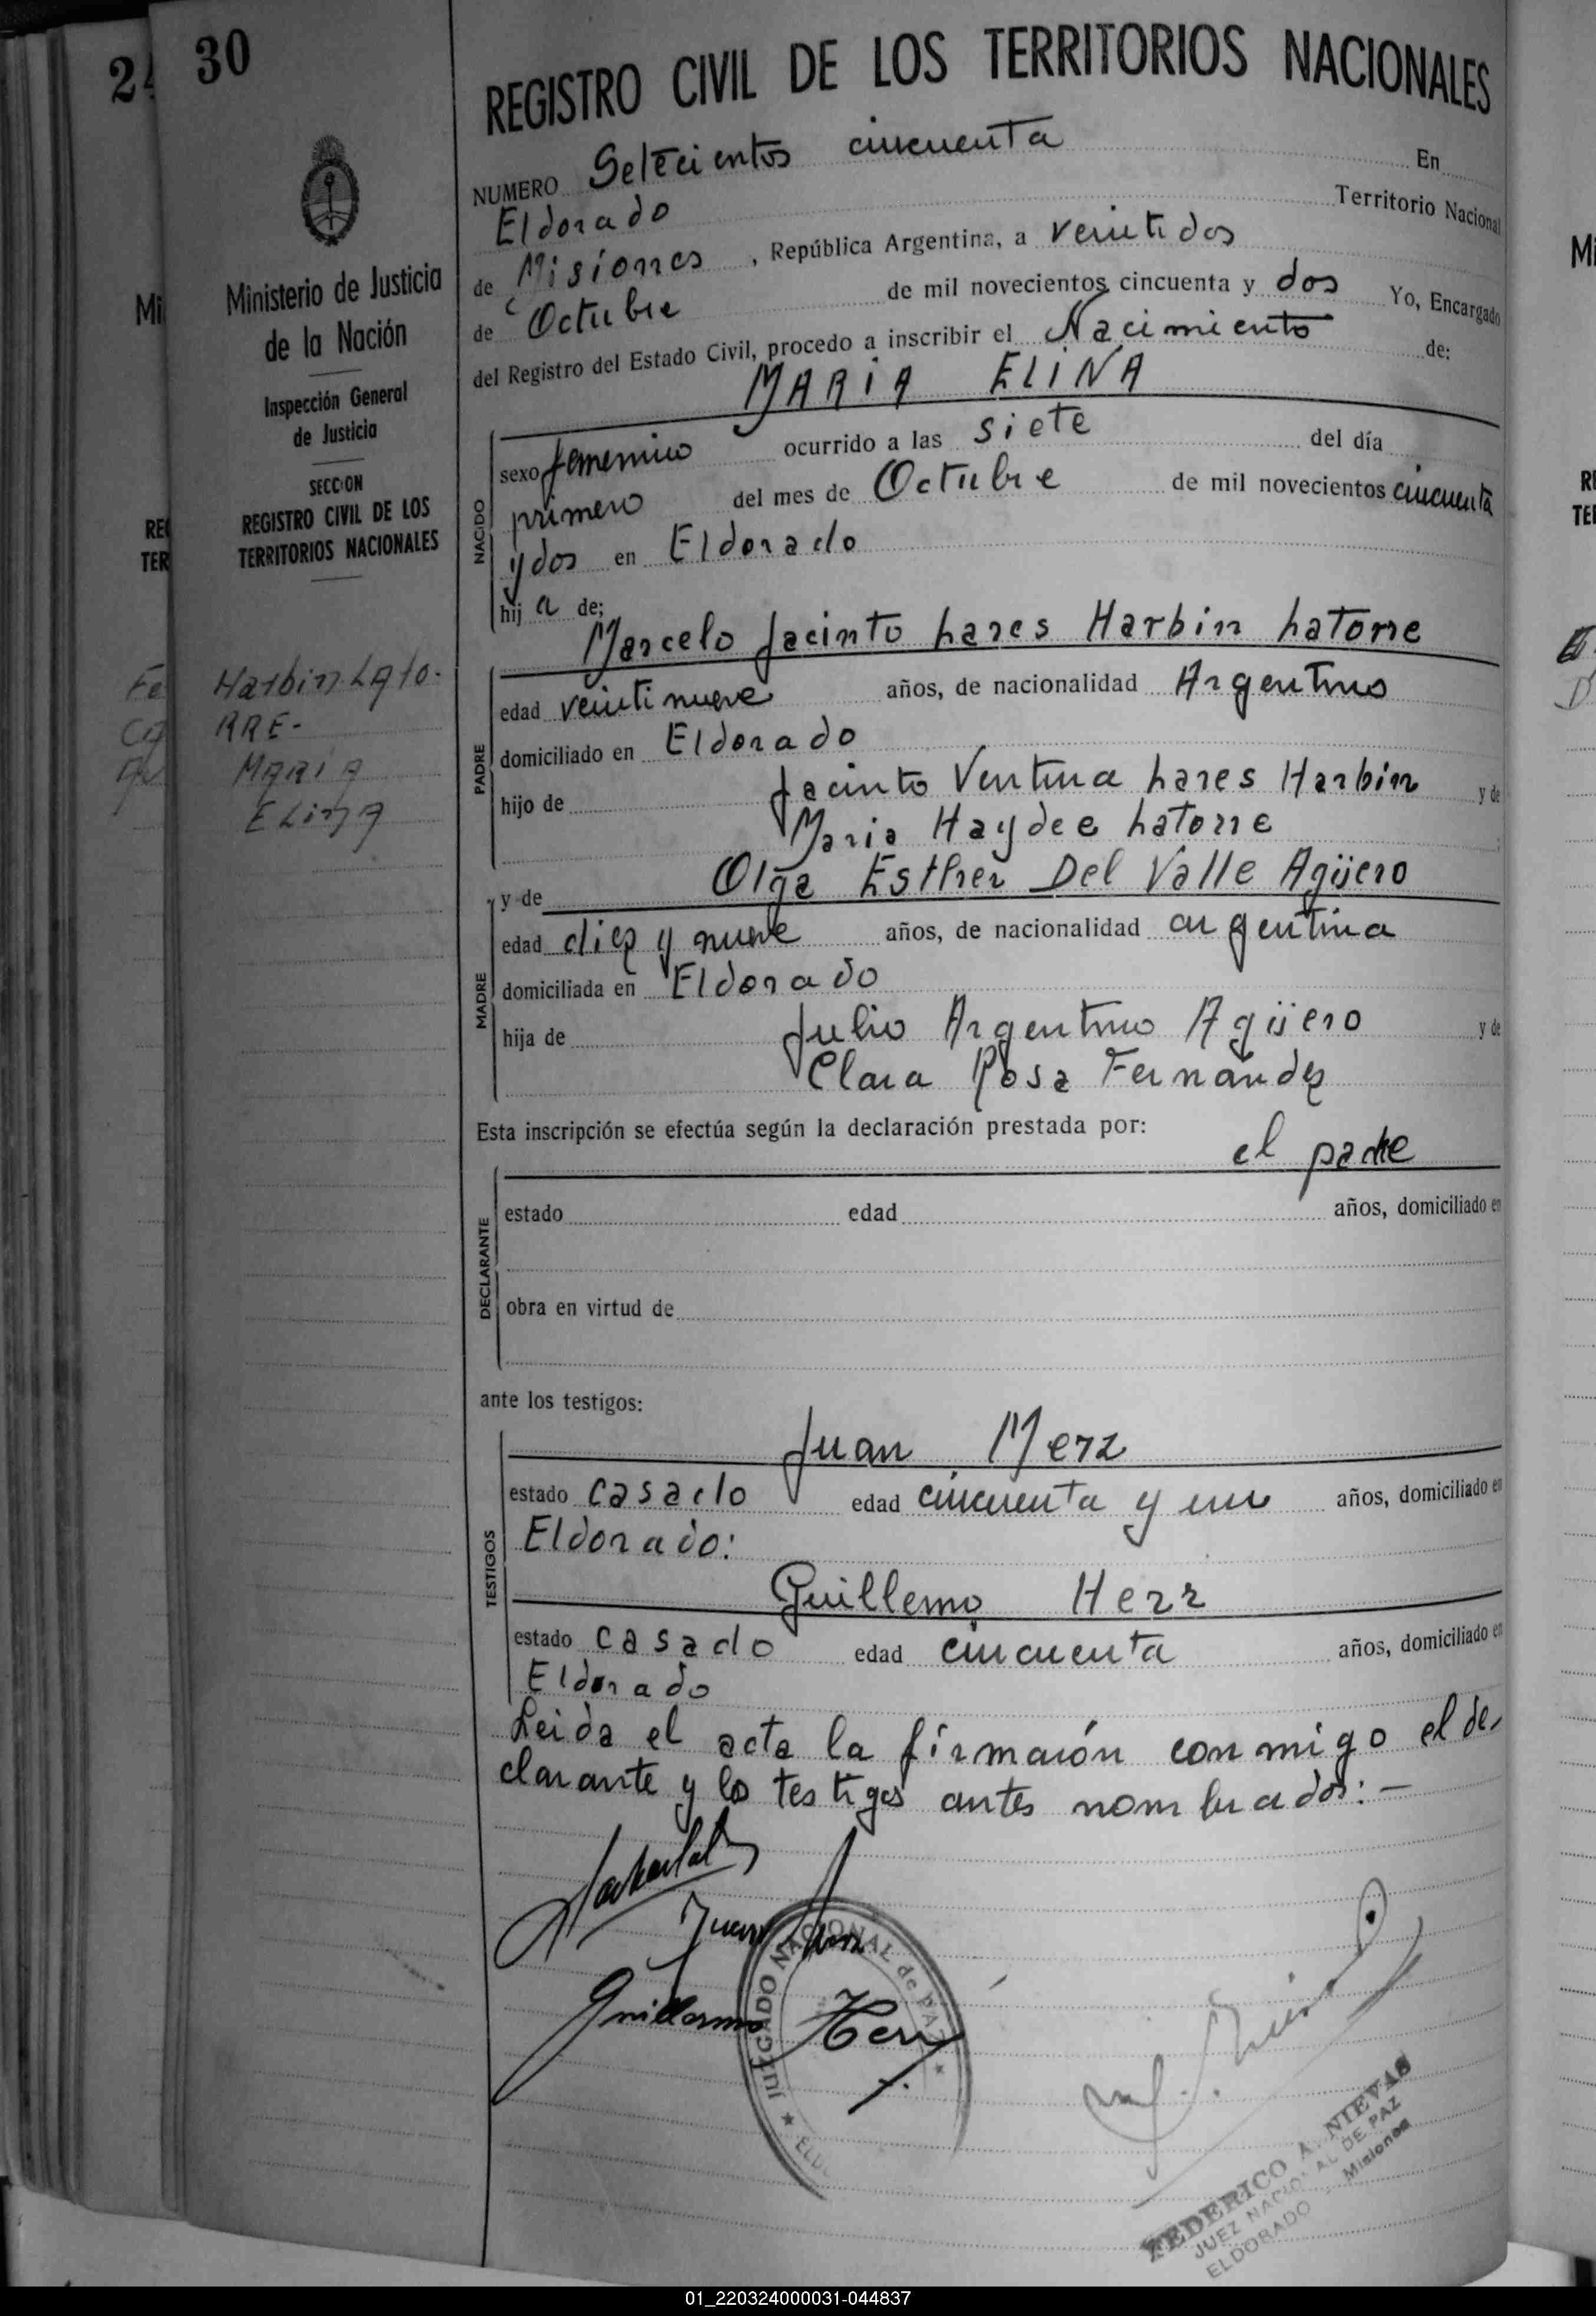 24
30
REGISTRO CIVIL DE LOS TERRITORIOS NACIONALES
NUMERO Setecientos cincuenta En
Eldorado Territorio Nacional
de Misiones, República Argentina, a veinti dos
de Octubre de mil novecientos cincuenta y dos Yo, Encargado
del Registro del Estado Civil, procedo a inscribir el Nacimiento de:
MARIA ELINA
Ministerio de Justicia
de la Nación
Inspección General
de Justicia
SECCION
REGISTRO CIVIL DE LOS
TERRITORIOS NACIONALES
Harbin Lato-
RRE-
MARIA
ELINA
NACIDO
sexo femenino ocurrido a las siete del día
primero del mes de Octubre de mil novecientos cincuenta
y dos en Eldorado
hij a de:
Marcelo Jacinto Lares Harbin Latorre
PADRE
edad veinti nueve años, de nacionalidad Argentino
domiciliado en Eldorado
hijo de Jacinto Ventura Lares Harbin y de
Maria Haydee Latorre
y de Olga Esther Del Valle Agüero
MADRE
edad diez y nueve años, de nacionalidad argentina
domiciliada en Eldorado
hija de Julio Argentino Agüero y de
Clara Rosa Fernández
Esta inscripción se efectúa según la declaración prestada por:
el padre
DECLARANTE
estado edad años, domiciliado en
obra en virtud de
ante los testigos:
Juan Merz
TESTIGOS
estado casado edad cincuenta y un años, domiciliado en
Eldorado:
Guillermo Herr
estado casado edad cincuenta años, domiciliado en
Eldorado
Leida el acta la firmarón conmigo el de-
clarante y los testigos antes nombrados: —
Juan Merz
Guillermo Herr
JUZGADO NACIONAL de PAZ
FEDERICO A. NIEVAS
JUEZ NACIONAL DE PAZ
ELDORADO Misiones
01_220324000031-044837